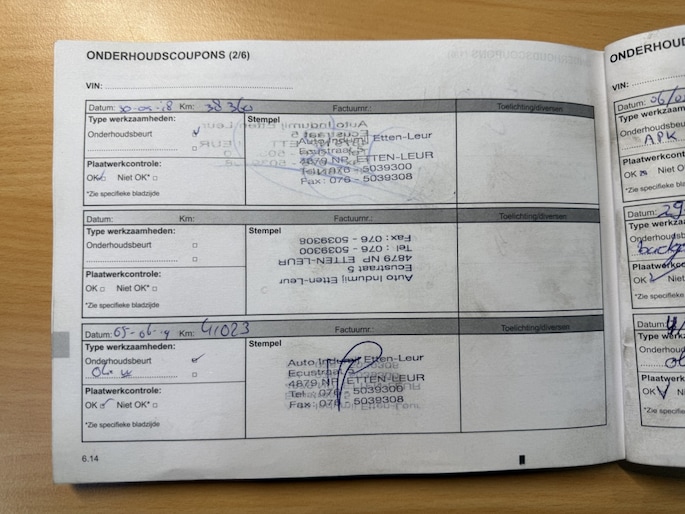 ONDERHOUDSCOUPONS (2/6)
VIN:
Datum: 30-05-18 Km: 38360 Factuurnr.: Toelichting/diversen
Type werkzaamheden: Stempel
Onderhoudsbeurt
Auto Indumij Etten-Leur
Ecustraat 5
4879 NP ETTEN-LEUR
Tel : 076 - 5039300
Fax : 076 - 5039308
Plaatwerkcontrole:
OK Niet OK*
*Zie specifieke bladzijde
Datum: Km: Factuurnr.: Toelichting/diversen
Type werkzaamheden: Stempel
Onderhoudsbeurt
Auto Indumij Etten-Leur
Ecustraat 5
4879 NP ETTEN-LEUR
Tel : 076 - 5039300
Fax : 076 - 5039308
Plaatwerkcontrole:
OK Niet OK*
*Zie specifieke bladzijde
Datum: 05-06-19 Km: 41023 Factuurnr.: Toelichting/diversen
Type werkzaamheden: Stempel
Onderhoudsbeurt
Auto Indumij Etten-Leur
Ecustraat 5
4879 NP ETTEN-LEUR
Tel : 076 - 5039300
Fax : 076 - 5039308
Plaatwerkcontrole:
OK Niet OK*
*Zie specifieke bladzijde
6.14
ONDERHOUD
VIN:
Datum: 06/0
Type werkza
Onderhoudsbeu
APK
Plaatwerkcon
OK Niet O
*Zie specifieke
Datum: 29
Type werkz
Onderhoudsb
Plaatwerkco
OK Niet
*Zie specifie
Datum:
Type werk
Onderhoud
Plaatwerk
OK Nie
*Zie specif